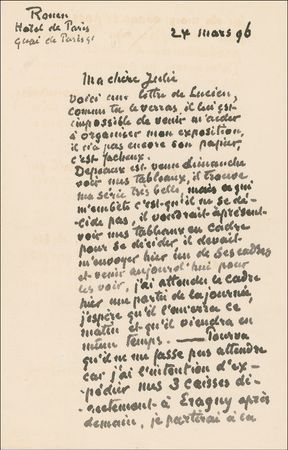 Rouen
Hotel de Paris
Quai de Paris 51
24 mars 96
Ma chère Julie
Voici une lettre de Lucien,
comme tu le verras, il lui est
impossible de venir m'aider
à organiser mon exposition,
il n'a pas encore son papier,
c'est facheux.
Depeaux est venu dimanche
voir mes tableaux, il trouve
ma série très belle, mais ce qui
m'embête c'est qu'il ne se dé-
cide pas, il voudrait àprésent
voir mes tableaux en cadre
pour se décider, il devait
m'envoyer hier un de ses cadres
et venir aujourd'hui pour
les voir, j'ai attendu le cadre
hier une partie de la journée,
j'espère qu'il l'enverra ce
matin et qu'il viendra en
même temps. — Pourvu
qu'il ne me fasse pas attendre
car j'ai l'intention d'ex-
pédier mes 3 caisses di-
rectement à Eragny après
demain, je partirai à